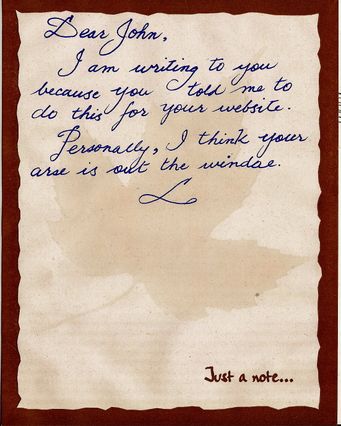 Dear John,
I am writing to you
because you told me to
do this for your website.
Personally, I think your
arse is out the windae.
L
Just a note...